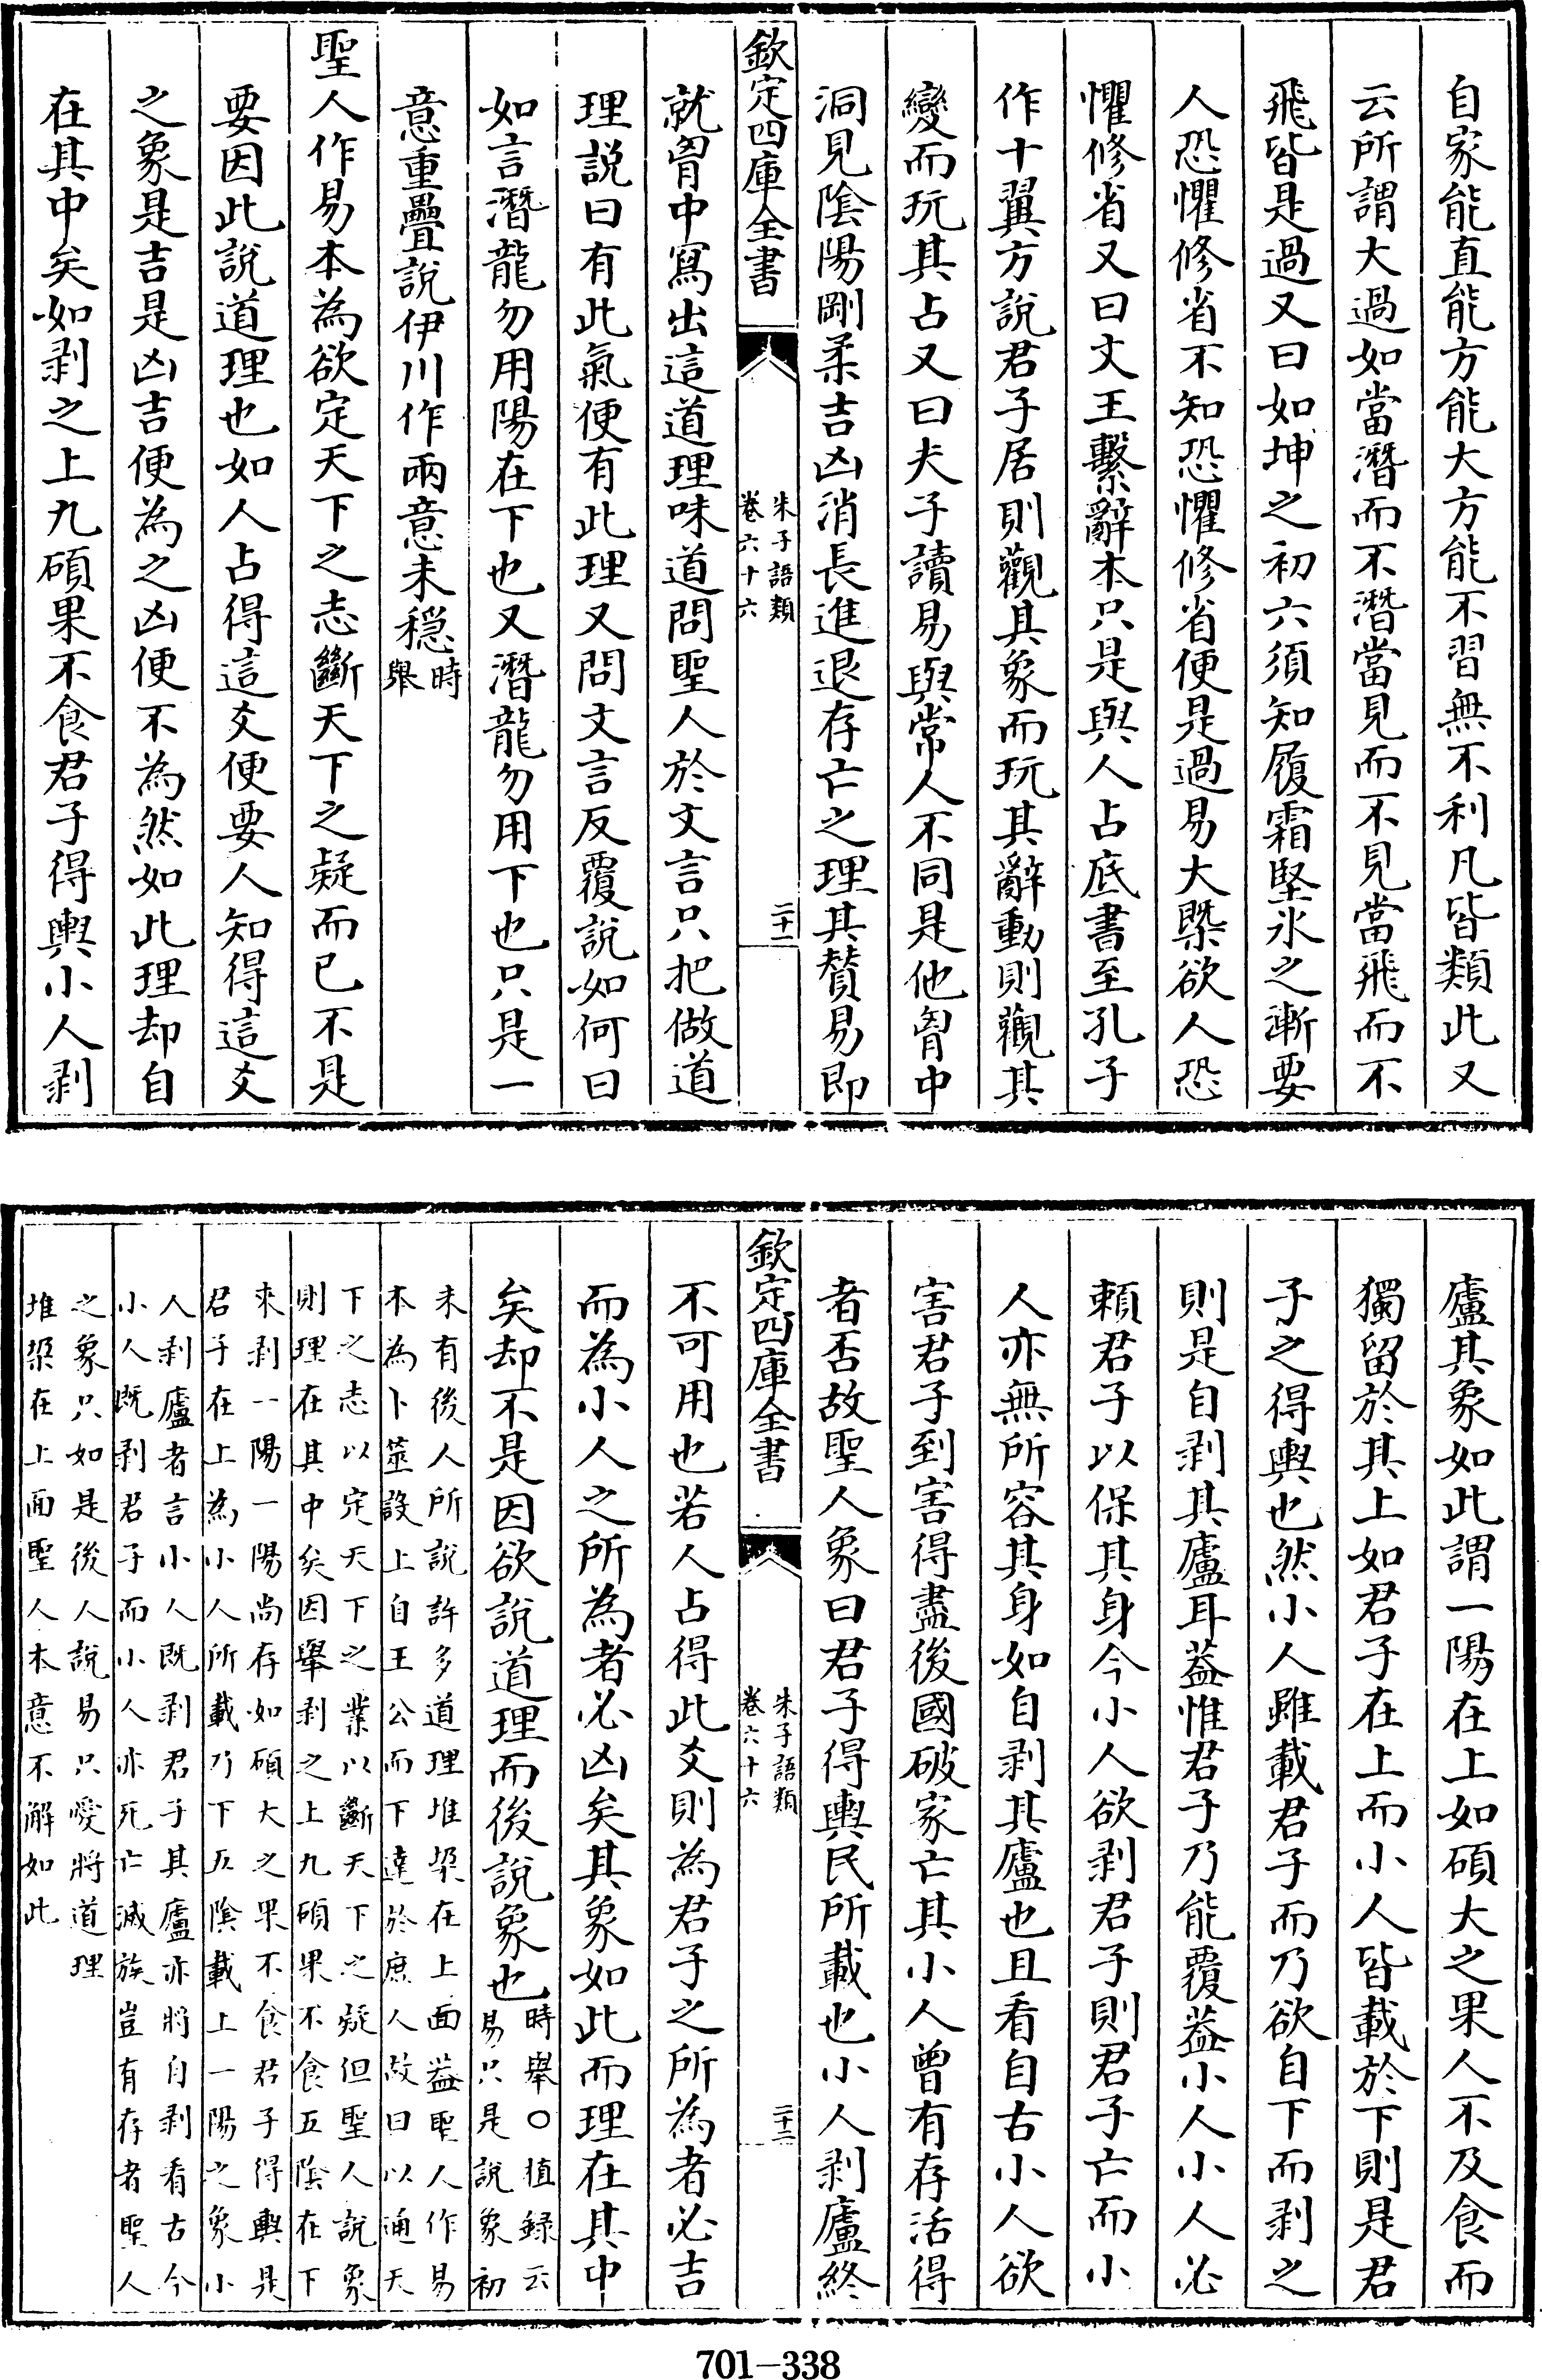 自家能直能方能大方能不習無不利凡皆類此又
云所謂大過如當潛而不潛當見而不見當飛而不
飛皆是過又曰如坤之初六須知履霜堅氷之漸要
人恐懼修省不知恐懼修省便是過易大槩欲人恐
懼修省又曰文王繫辭本只是與人占底書至孔子
作十翼方說君子居則觀其象而玩其辭動則觀其
變而玩其占又曰夫子讀易與常人不同是他胷中
洞見陰陽剛柔吉凶消長進退存亡之理其賛易即
欽定四庫全書
朱子語類
卷六十六
二十一
就胷中寫出這道理味道問聖人於文言只把做道
理説曰有此氣便有此理又問文言反覆說如何曰
如言潛龍勿用陽在下也又潛龍勿用下也只是一
意重疊說伊川作兩意未穏時
舉
聖人作易本為欲定天下之志斷天下之疑而已不是
要因此說道理也如人占得這爻便要人知得這爻
之象是吉是凶吉便為之凶便不為然如此理却自
在其中矣如剥之上九碩果不食君子得輿小人剥
廬其象如此謂一陽在上如碩大之果人不及食而
獨留於其上如君子在上而小人皆載於下則是君
子之得輿也然小人雖載君子而乃欲自下而剥之
則是自剥其廬耳葢惟君子乃能覆葢小人小人必
頼君子以保其身今小人欲剥君子則君子亡而小
人亦無所容其身如自剥其廬也且看自古小人欲
害君子到害得盡後國破家亡其小人曾有存活得
者否故聖人象曰君子得輿民所載也小人剥廬終
欽定四庫全書
朱子語類
卷六十六
二十二
不可用也若人占得此爻則為君子之所為者必吉
而為小人之所為者必凶矣其象如此而理在其中
矣却不是因欲說道理而後說象也時舉○植録云
易只是說象初
未有後人所說許多道理堆垜在上面葢聖人作易
本為卜筮設上自王公而下達於庶人故曰以通天
下之志以定天下之業以斷天下之疑但聖人說象
則理在其中矣因舉剥之上九碩果不食五陰在下
來剥一陽一陽尚存如碩大之果不食君子得輿是
君子在上為小人所載乃下五陰載上一陽之象小
人剥廬者言小人既剥君子其廬亦將自剥看古今
小人既剥君子而小人亦死亡滅族豈有存者聖人
之象只如是後人說易只愛將道理
堆垜在上面聖人本意不解如此
701-338